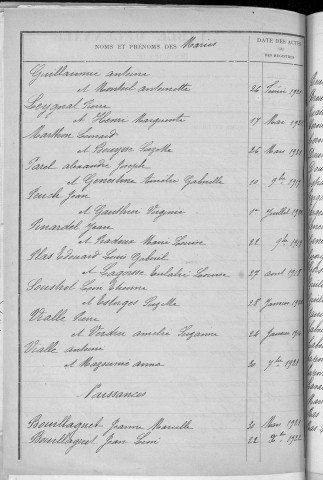 NOMS ET PRÉNOMS DES Mariés
DATE DES ACTES
OU
DES REGISTRES
Guillaumie antoine
et Monteil antoinette 26 février 1921
Leygnat Pierre
et Henri Marguerite 17 Mars 1921
Marthon Leonard
et Bouysse Lizette 26 Mars 1921
Paret alexandre Joseph
et Genestine Amélie Gabrielle 10 9bre 1919
Peuch Jean
et Gauthier Virginie 1er Juillet
Penardel Jean
et Pradeux Marie Louise 22 9bre 1919
Plas Edouard Louis Gabriel
et Lagorsse Eulalie Louise 27 avril 1918
Soustrot Léon Etienne
et Estorges 28 Janvier
Vialle Pierre
et Verdier amélie Suzanne 24 Janvier
Vialle antoine
et Mazaumié anna 20 7bre 1921
Naissances
Bouillaguet Jeanne Marcelle 20 Mars 1921
Bouillaguet Jean Léon 22 Xbre 1922